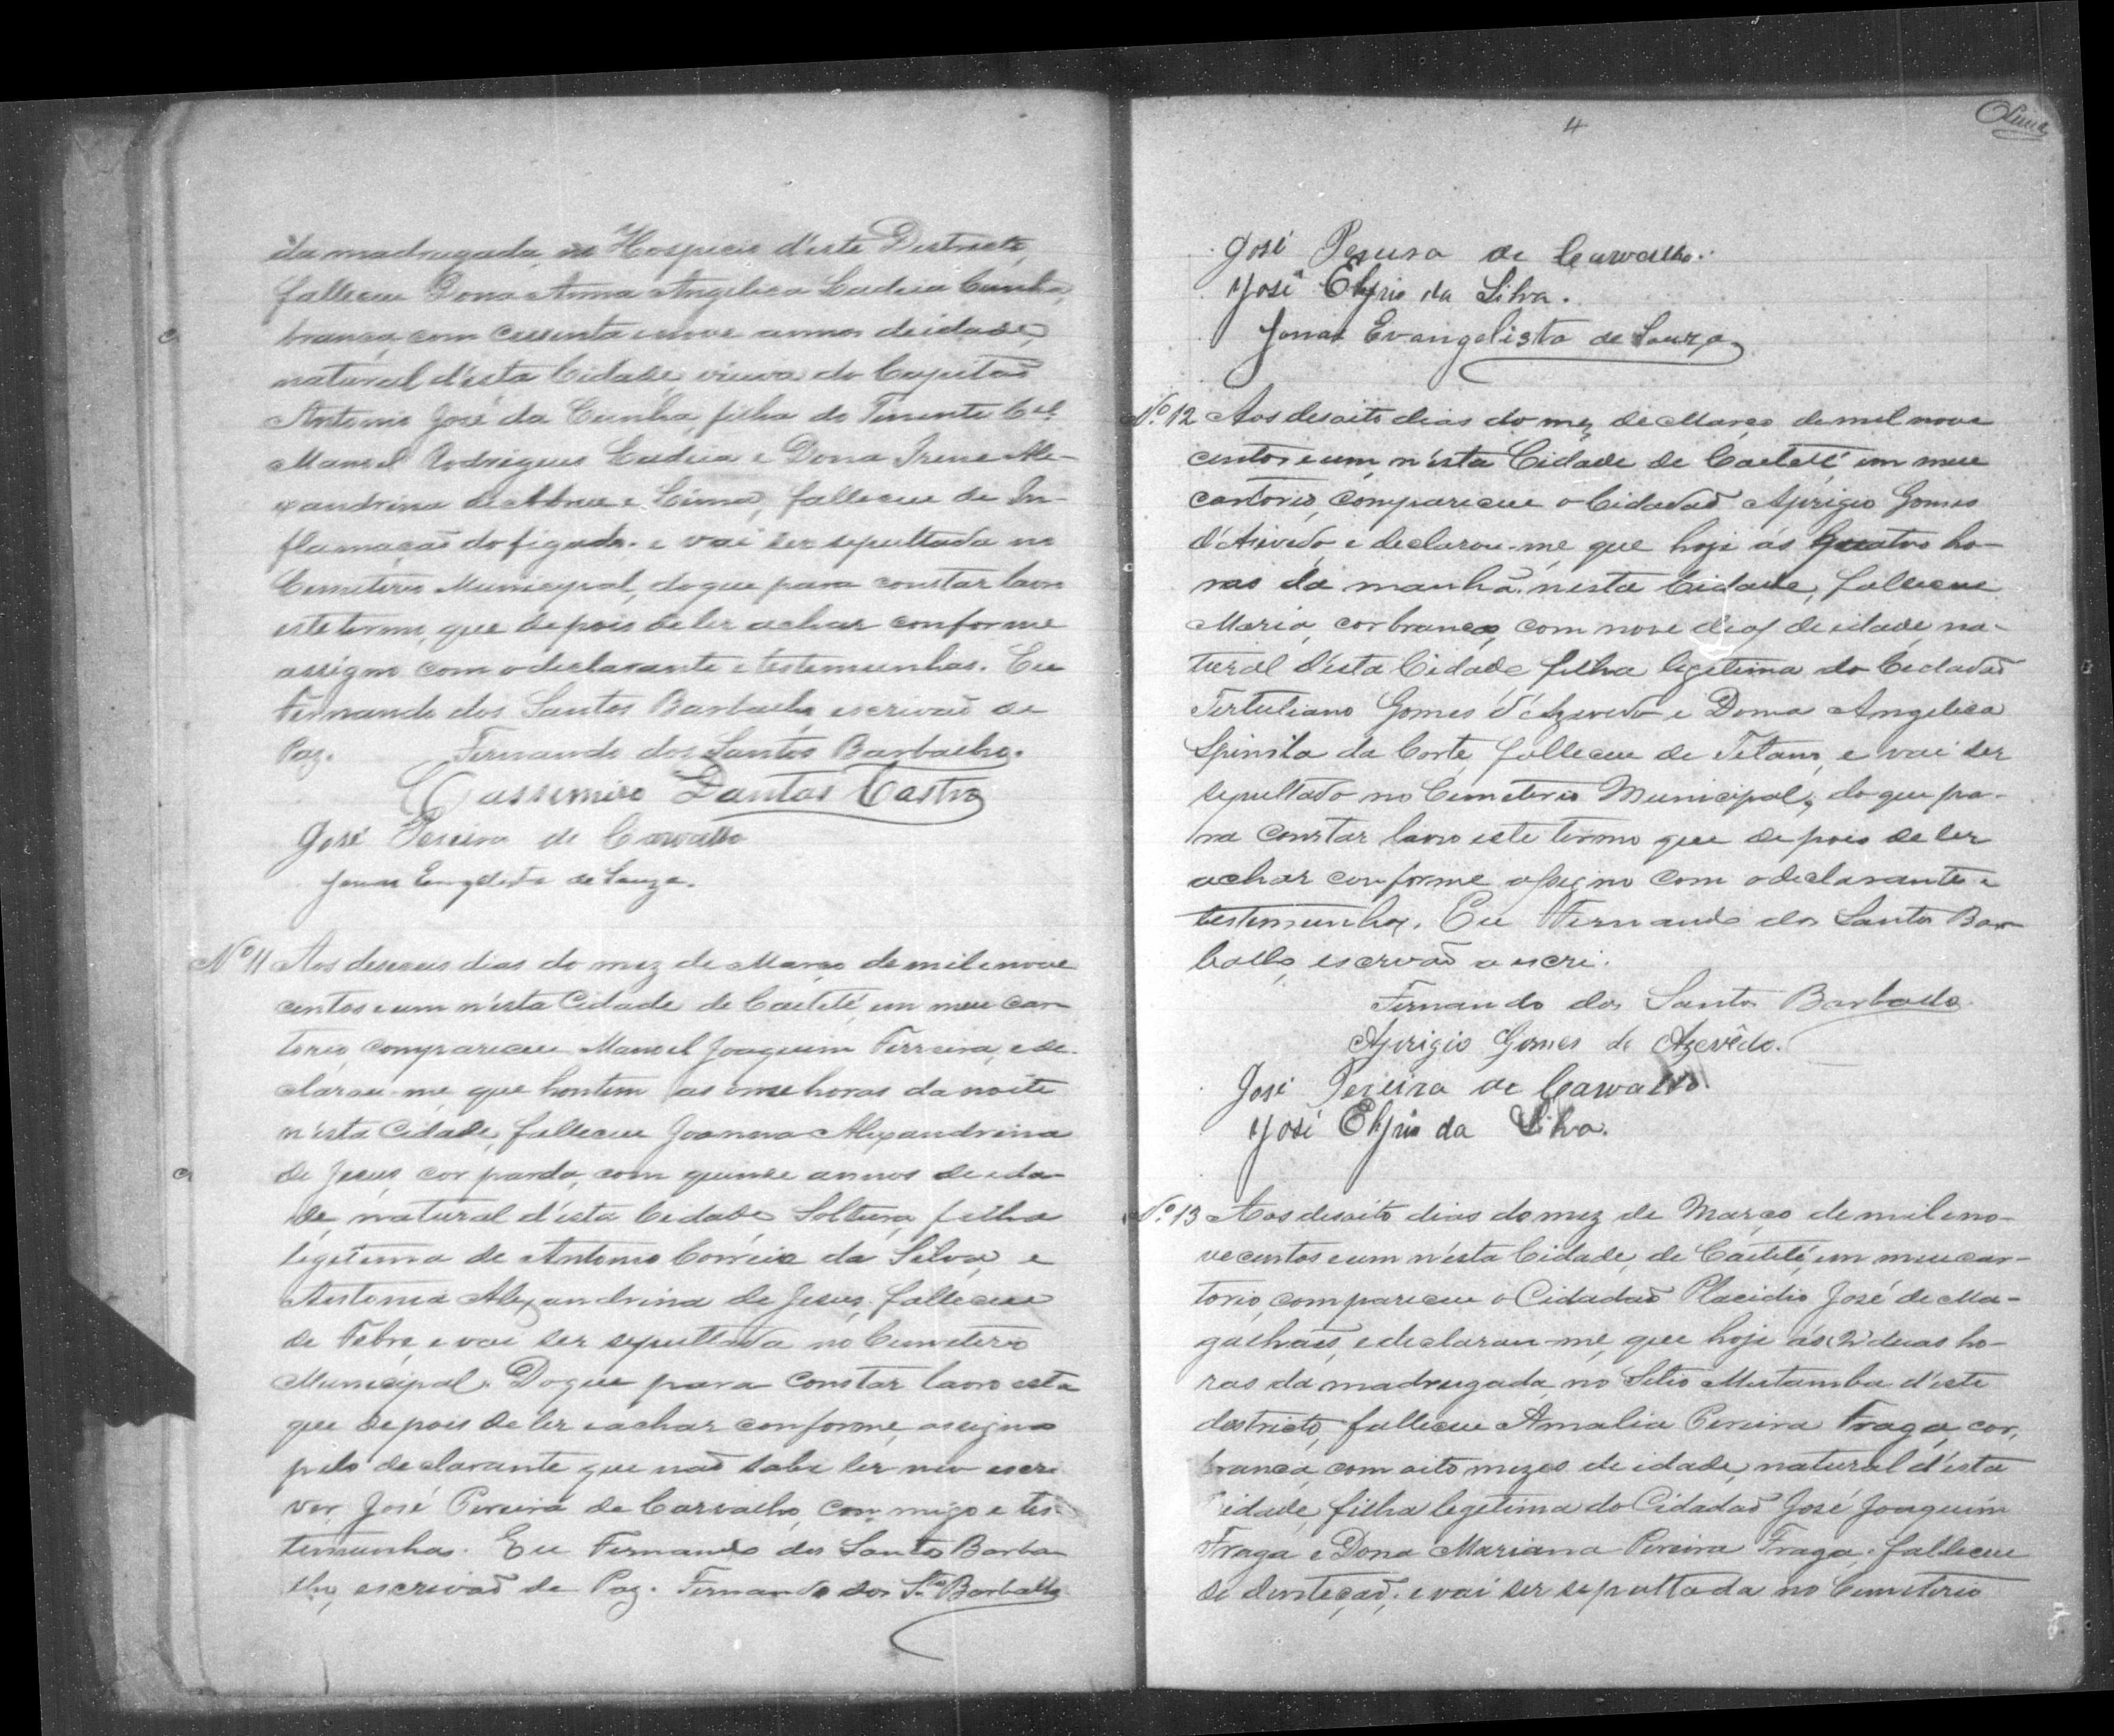 da madrugada no Hospicio d'este Districto,
falleceu Dona Anna Angelica Ladeia Cunha,
branca, com cessenta e nove annos de idade,
natural d'esta Cidade, viuva do Capitaõ
Antonio José da Cunha, filha do Tenente Cel.
Manoel Rodrigues Ladeia e Dona Irene Ale-
xandrina de Abreu e Lima, falleceu de In-
flamaçaõ do figado. e vai ser sepultada no
Cemiterio Municipal, do que para constar lavro
este termo, que depois de ler achar conforme
assigno com o declarante e testemunhas. Eu
Fernando dos Santos Barbalho escrivaõ de
Paz. Fernando dos Santos Barbalho.
Cassimiro Dantas Castro
José Pereira de Carvalho
Jonas Evangelista de Souza.
Nº 11 Aos deseceis dias do mez de Março de mil e nove
centos e um n'esta Cidade de Caeteté, em meu car
torio compareceu Manoel Joaquim Ferreira, e de-
clarou-me que hontem as onse horas da noite
n'esta Cidade, falleceu Joanna Alexandrina
de Jesus cor parda, com quinse annos de ida-
de, natural d'esta Cidade, Solteira, filha
legitima de Antonio Corrêia da Silva, e
Antonia Alexandrina de Jesus, falleceu
de Febre, e vai ser sepultada no Cemiterio
Municipal. Do que para constar lavro esta
que depois de ler e achar conforme, assigno
pelo declarante que naõ sabe ler nem escre
ver, José Pereira de Carvalho, com migo e tes-
temunhas. Eu Fernando dos Santos Barba
lho, escrivaõ de Paz. Fernando dos Stos Barbalho
4
José Pereira de Carvalho.
José Elpio da Silva.
Jonas Evangelista de Souza
Nº 12 Aos desoito dias do mez de Março de mil nove
centos e um n'esta Cidade de Caeteté em meu
cartorio, compareceu o Cidadaõ Aprigio Gomes
d'Asevedo, e declarou-me, que hoje ás quatro ho-
ras da manhã, nesta Cidade, falleceu
Maria, cor branca, com nove dias de idade, na-
tural d'esta Cidade filha legitima do Cidadaõ
Tertuliano Gomes d'Azevedo e Dona Angelica
Spinola da Corte, falleceu de Tetano, e vai ser
sepultado no Cemiterio Municipal, do que pa-
ra constar lavro este termo que depois de ler
achar conforme assigno com o declarante e
testemunhas. Eu Fernando dos Santos Bar
balho, escrvaõ a escri.
Fernando dos Santos Barbalho.
Aprigio Gomes de Azevêdo.
José Pereira de Carvalho
José Elpio da Silva.
Nº 13 Aos desoito dias do mez de Março de mil e no-
vecentos e um n'esta Cidade, de Caeteté, em meu car-
torio, compareceu o Cidadaõ Placidio José de Ma-
galhaes, e declarou-me, que hoje ás (2) duas ho-
ras da madrugada, no Sitio Mutamba d'este
destricto, falleceu Amalia Pereira Fraga, cor,
branca, com oito mezes de idade, natural d'esta
Cidade, filha legitima do Cidadaõ José Joaquim
Fraga e Dona Mariana Pereira Fraga. falleceu
de denteçaõ, e vai ser sepultada no Cemiterio